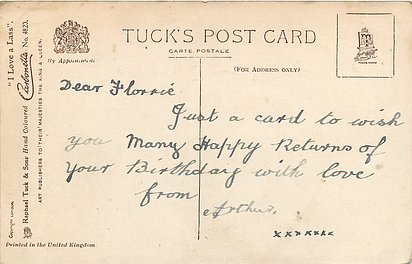 TUCK'S POST CARD
CARTE POSTALE
By Appointment.
(FOR ADDRESS ONLY)
"I Love a Lass".
Carbonette No. 4823.
Raphael Tuck & Sons Hand Coloured
ART PUBLISHERS TO THEIR MAJESTIES THE KING & QUEEN.
Dear Florrie
Just a card to wish
you Many Happy Returns of
Your Birthday with love
from
Arthur.
xxxxxxx
Printed in the United Kingdom.